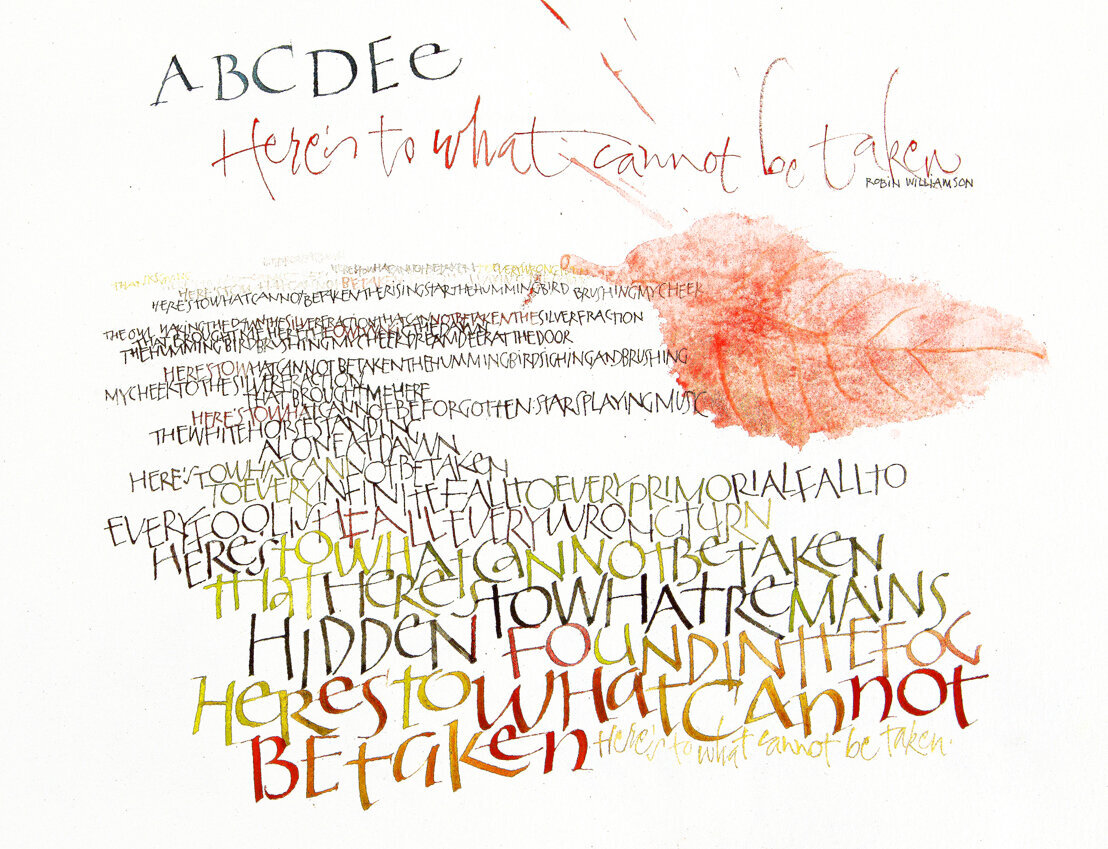 ABCDEe
Here's to what cannot be taken
ROBIN WILLIAMSON
HERE'S TO WHAT CANNOT BE TAKEN EVERY WRONG
HERE'S TO WHAT CANNOT BE TAKEN THE RISING STAR THE HUMMING BIRD BRUSHING MY CHEEK
THE OWL WAKING THE DAWN THE SILVER FRACTION WHAT CANNOT BE TAKEN THE SILVER FRACTION
THAT BROUGHT ME HERE THE OWL WAKING THE DAWN
THE HUMMING BIRD BRUSHING MY CHEEK DREAM DEER AT THE DOOR
HERE'S TO WHAT CANNOT BE TAKEN THE HUMMINGBIRD SIGHING AND BRUSHING
MY CHEEK TO THE SILVER FRACTION
THAT BROUGHT ME HERE
HERE'S TO WHAT CANNOT BE FORGOTTEN·STARS PLAYING MUSIC
THE WHITE HORSE STANDING
ALONE AT DAWN
HERE'S TO WHAT CANNOT BE TAKEN
TO EVERY INFINITE FALL TO EVERY PRIMORIAL FALL TO
EVERY FOOLISH FALL EVERY WRONG TURN
HERES TO WHAT CANNOT BE TAKEN
that HERE IS TO WHAT REMAINS
HIDDEN FOUND IN THE FOG
HERES TO WHAT CANNOT
BE taken Here's to what cannot be taken.